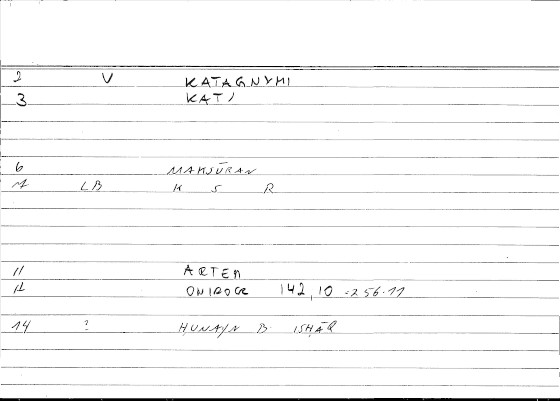 2 V KATAGNYMI
3 KAT/
6 MAKSŪRAN
LB K S R
11 ARTEM
12 ONIROCR 142,10 - 256.11
14 ? ḤUNAYN B ISḤĀQ